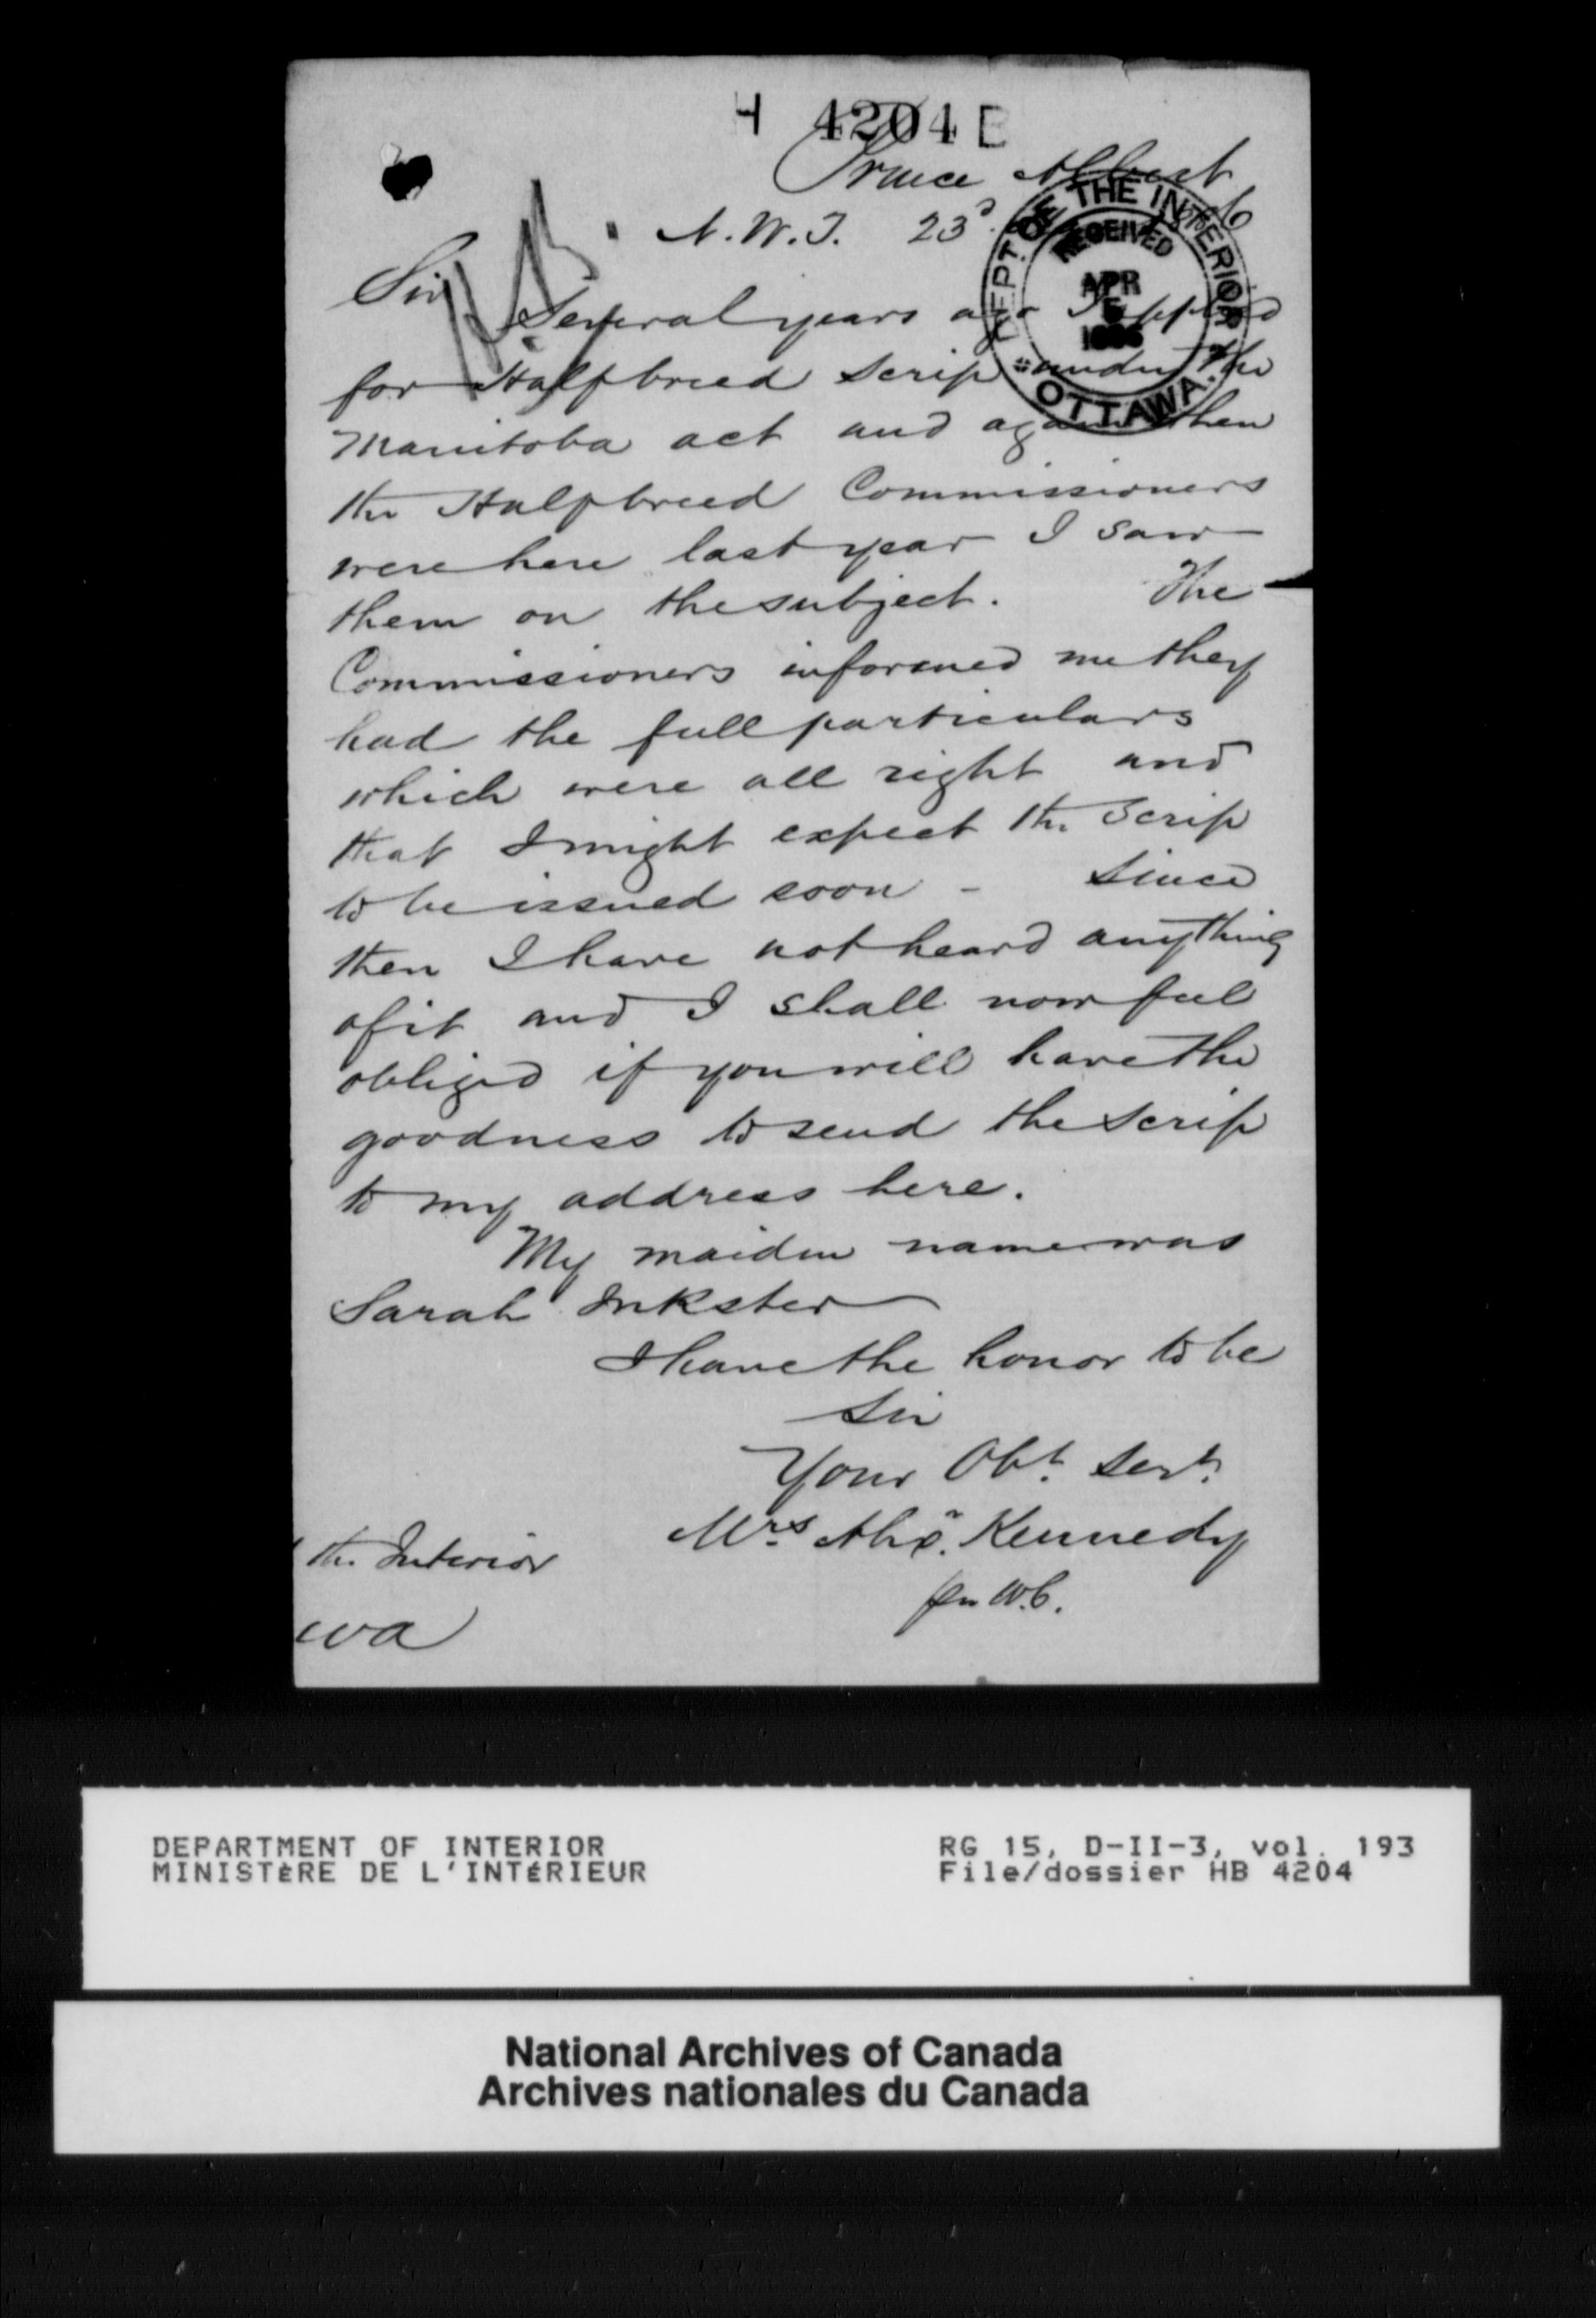 H 4204 B
Prince Albert
N.W.T. 23d
DEPT. OF THE INTERIOR
RECEIVED
APR
5
1886
OTTAWA.
Sir
Several years ago I applied
for Halfbreed Scrip under the
Manitoba act and again when
the Halfbreed Commissioners
were here last year I saw
them on the subject. The
Commissioners informed me they
had the full particulars
which were all right and
that I might expect the Scrip
to be issued soon - Since
then I have not heard anything
of it and I shall now feel
obliged if you will have the
goodness to send the Scrip
to my address here.
My maiden name was
Sarah Inkster
I have the honor to be
Sir
Your Obt. Servt.
Mrs. Alexr. Kennedy
per W.C.
the Interior
wa
DEPARTMENT OF INTERIOR
MINISTÈRE DE L'INTÉRIEUR
RG 15, D-II-3, vol. 193
File/dossier HB 4204
National Archives of Canada
Archives nationales du Canada